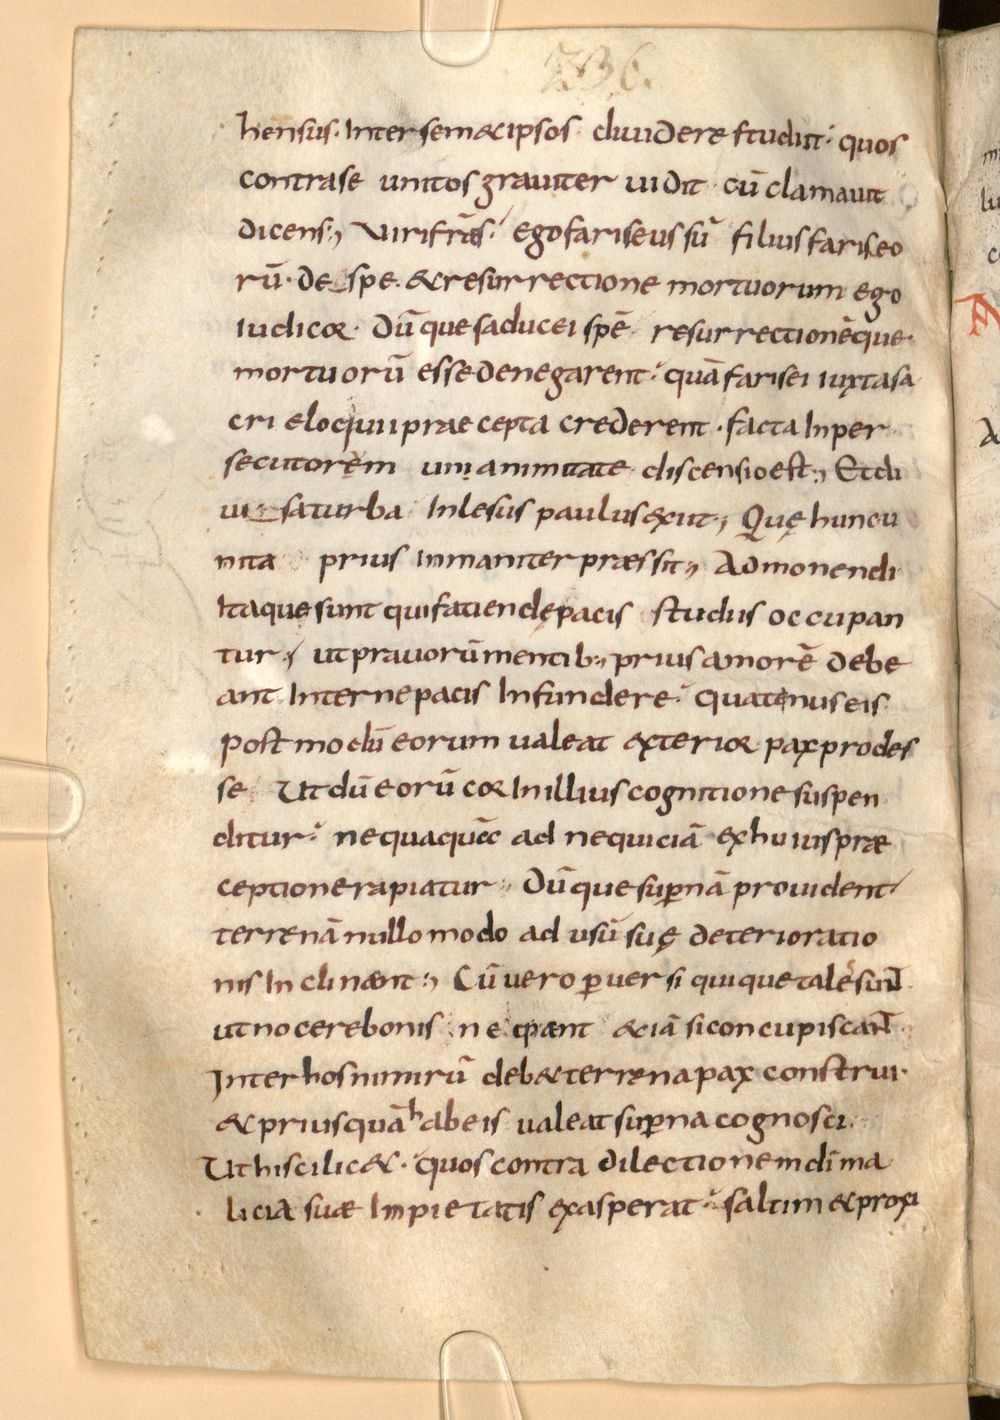 236.
hensus· Inter semetipsos diuidere studuit· quos
contra se unitos grauiter uidit· cū clamauit
dicens·, Viri frās· ego fariseus sū filius fariseo
rū· de spe· & resurrectione mortuorum ego
iudicor· Dūque saducei spē resurrectionēque·
mortuorū esse denegarent· quā farisei iuxta sa
cri eloquii praecepta crederent· facta In per
secutorem unianimitate discensio est·, Et di
ui saturba Inlesus paulus exiit·, Quę hunc u
nita prius inmaniter præssit·, Admonendi
Itaque sunt qui fatiendę pacis studiis occupan
tur· ut prauorū mentib·, prius amorē debe
ant Internę pacis Infundere· quatenus eis
post modū eorum ualeat exterior pax prodes
se Ut dū eorū cor In illius cognitione suspen
ditur· nequaquā ad nequiciā ex huius præ
ceptione rapiatur· Dūque sup̄nā prouident
terrenā nullo modo ad usū suę deterioratio
nis Inclinænt·, Cū uero p̄uersi quique tales sunt
ut nocere bonis neq̄ænt &iā si concupiscant
Inter hos nimirū deb& terrena pax construi·
& priusquā ab eis ualeat sup̄na cognosci·
Ut hi scilic&· quos contra dilectionem dī ma
licia suæ Impietatis exasperat· saltim & proxi